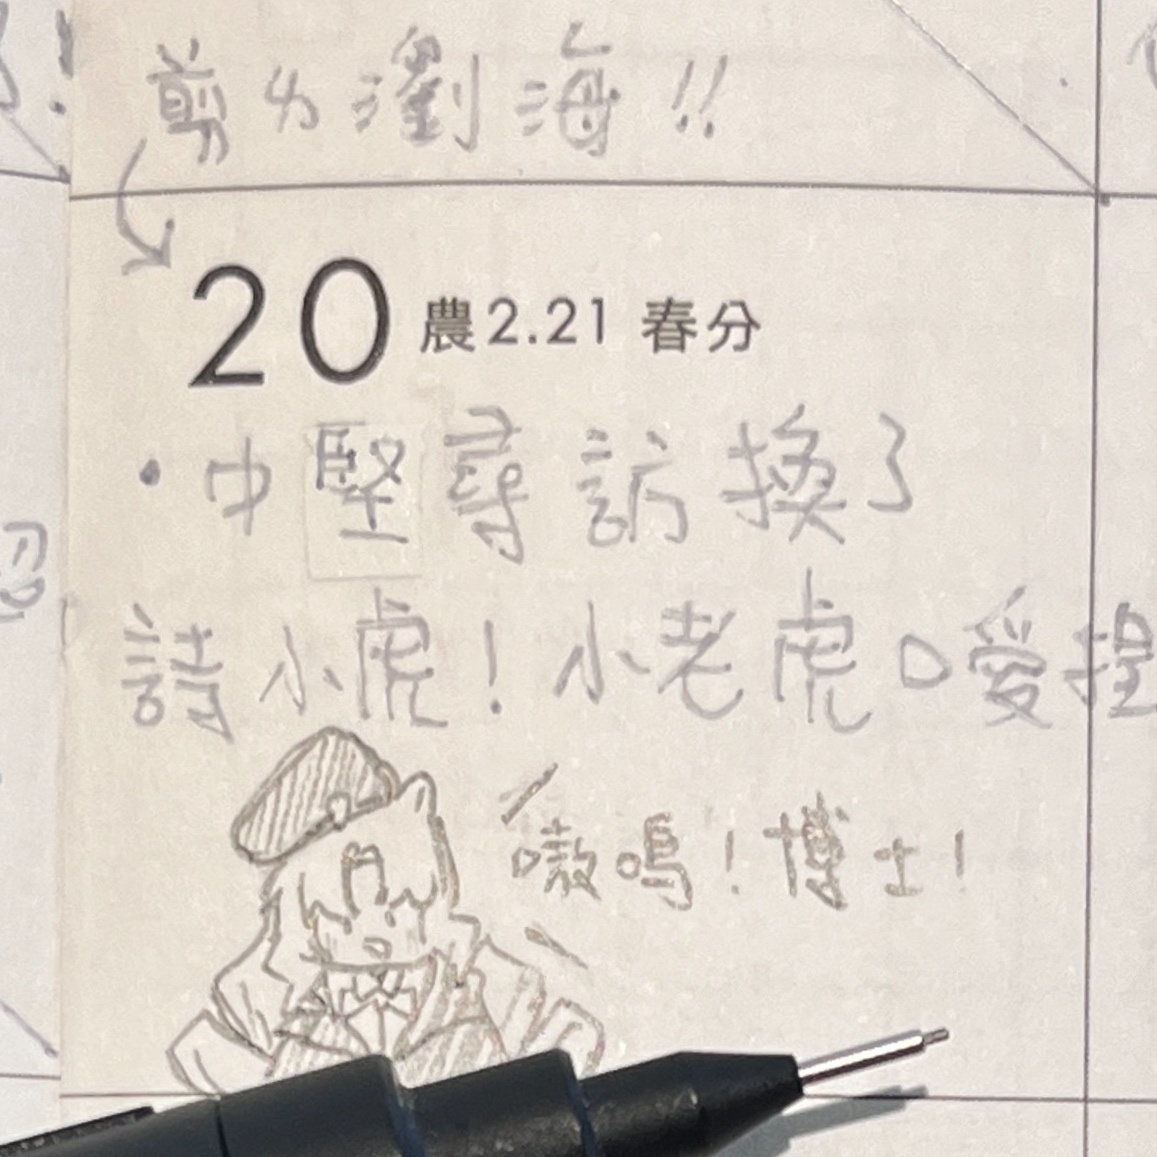 剪ㄌ瀏海!!
20 農2.21 春分
・中堅尋訪換了
詩小虎!小老虎口愛捏
嗷嗚!博士!